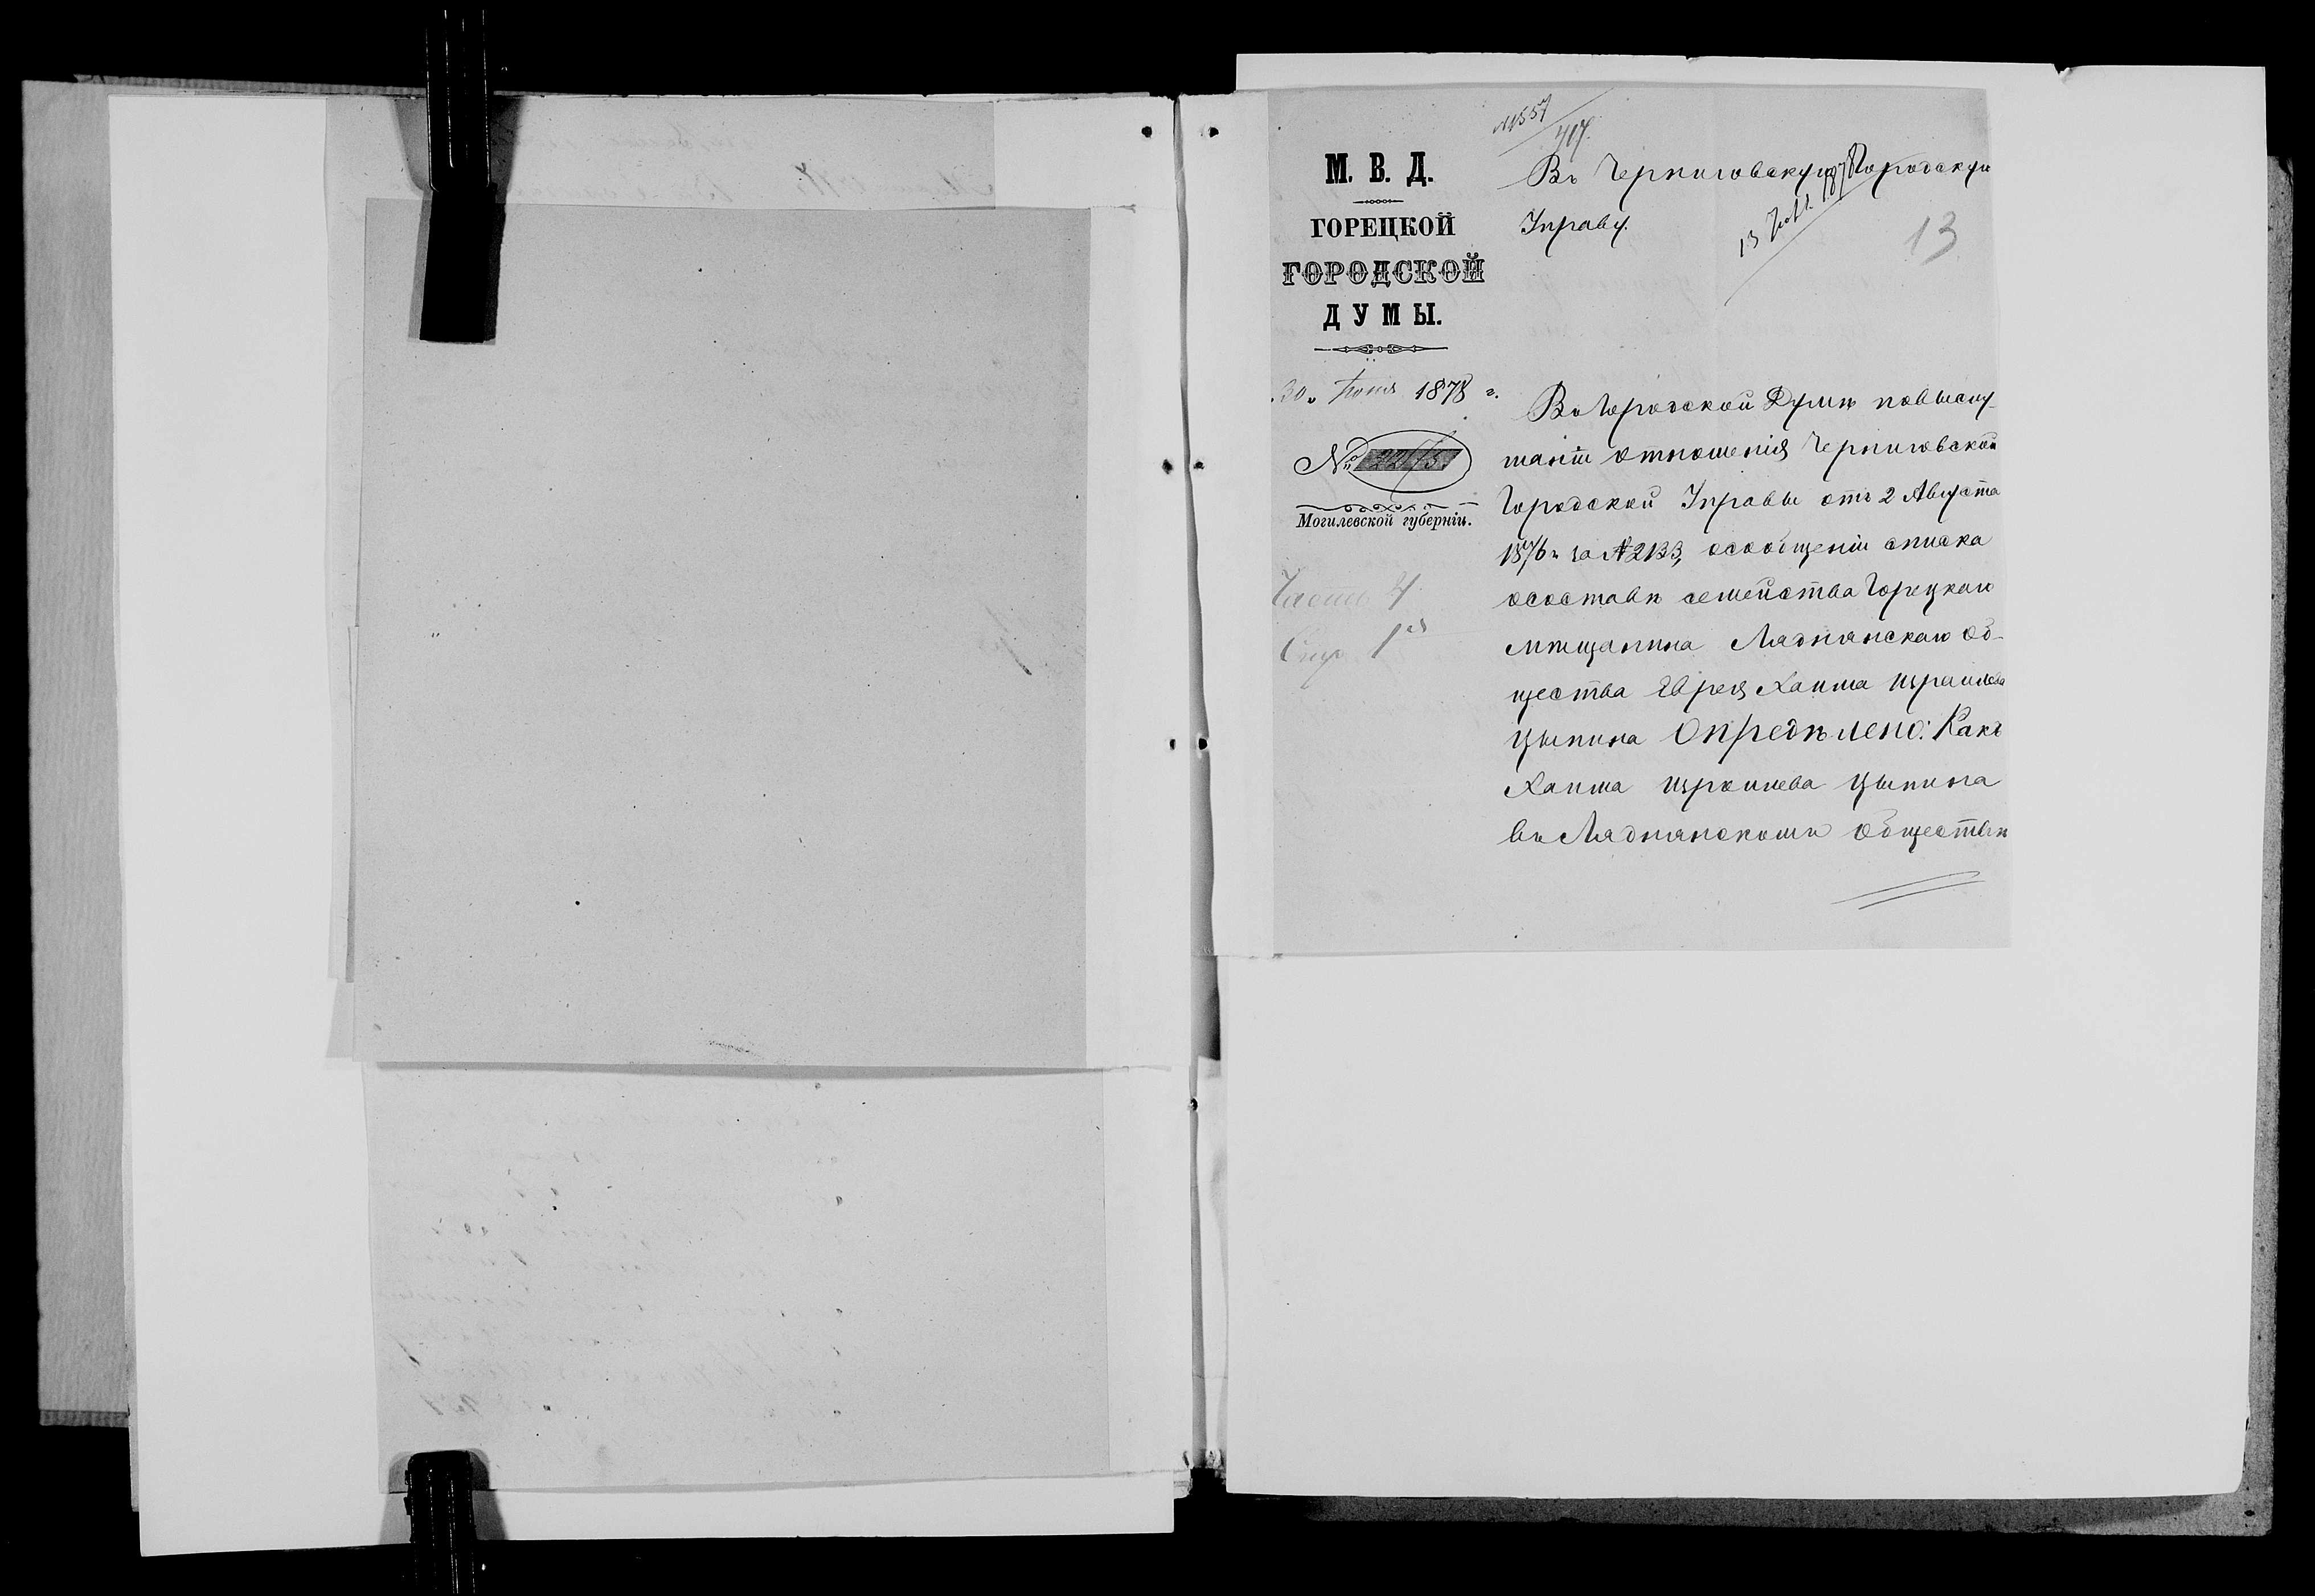 №1557
417.
13
М. В. Д.
ГОРЕЦКОЙ
ГОРОДСКОЙ
ДУМЫ.
30 Іюня 1878 г.
№ 2275
Могилевской губерніи.
Часть 4
Въ Черниговскую Городскую
Управу.
13 1878
Въ Городской Думѣ по выслу-
шаніи отношенія Черниговской
Городской Управы отъ 2 Августа
1876 г за №2133, о сообщеніи списка
о составѣ семейства Горецкаго
мѣщанина Ляднянскаго об-
щества Еврея Хаима Израилева
Цыпина Опредѣлено: Какъ
Хаима Израилева Цыпина
въ Ляднянскомъ обществѣ